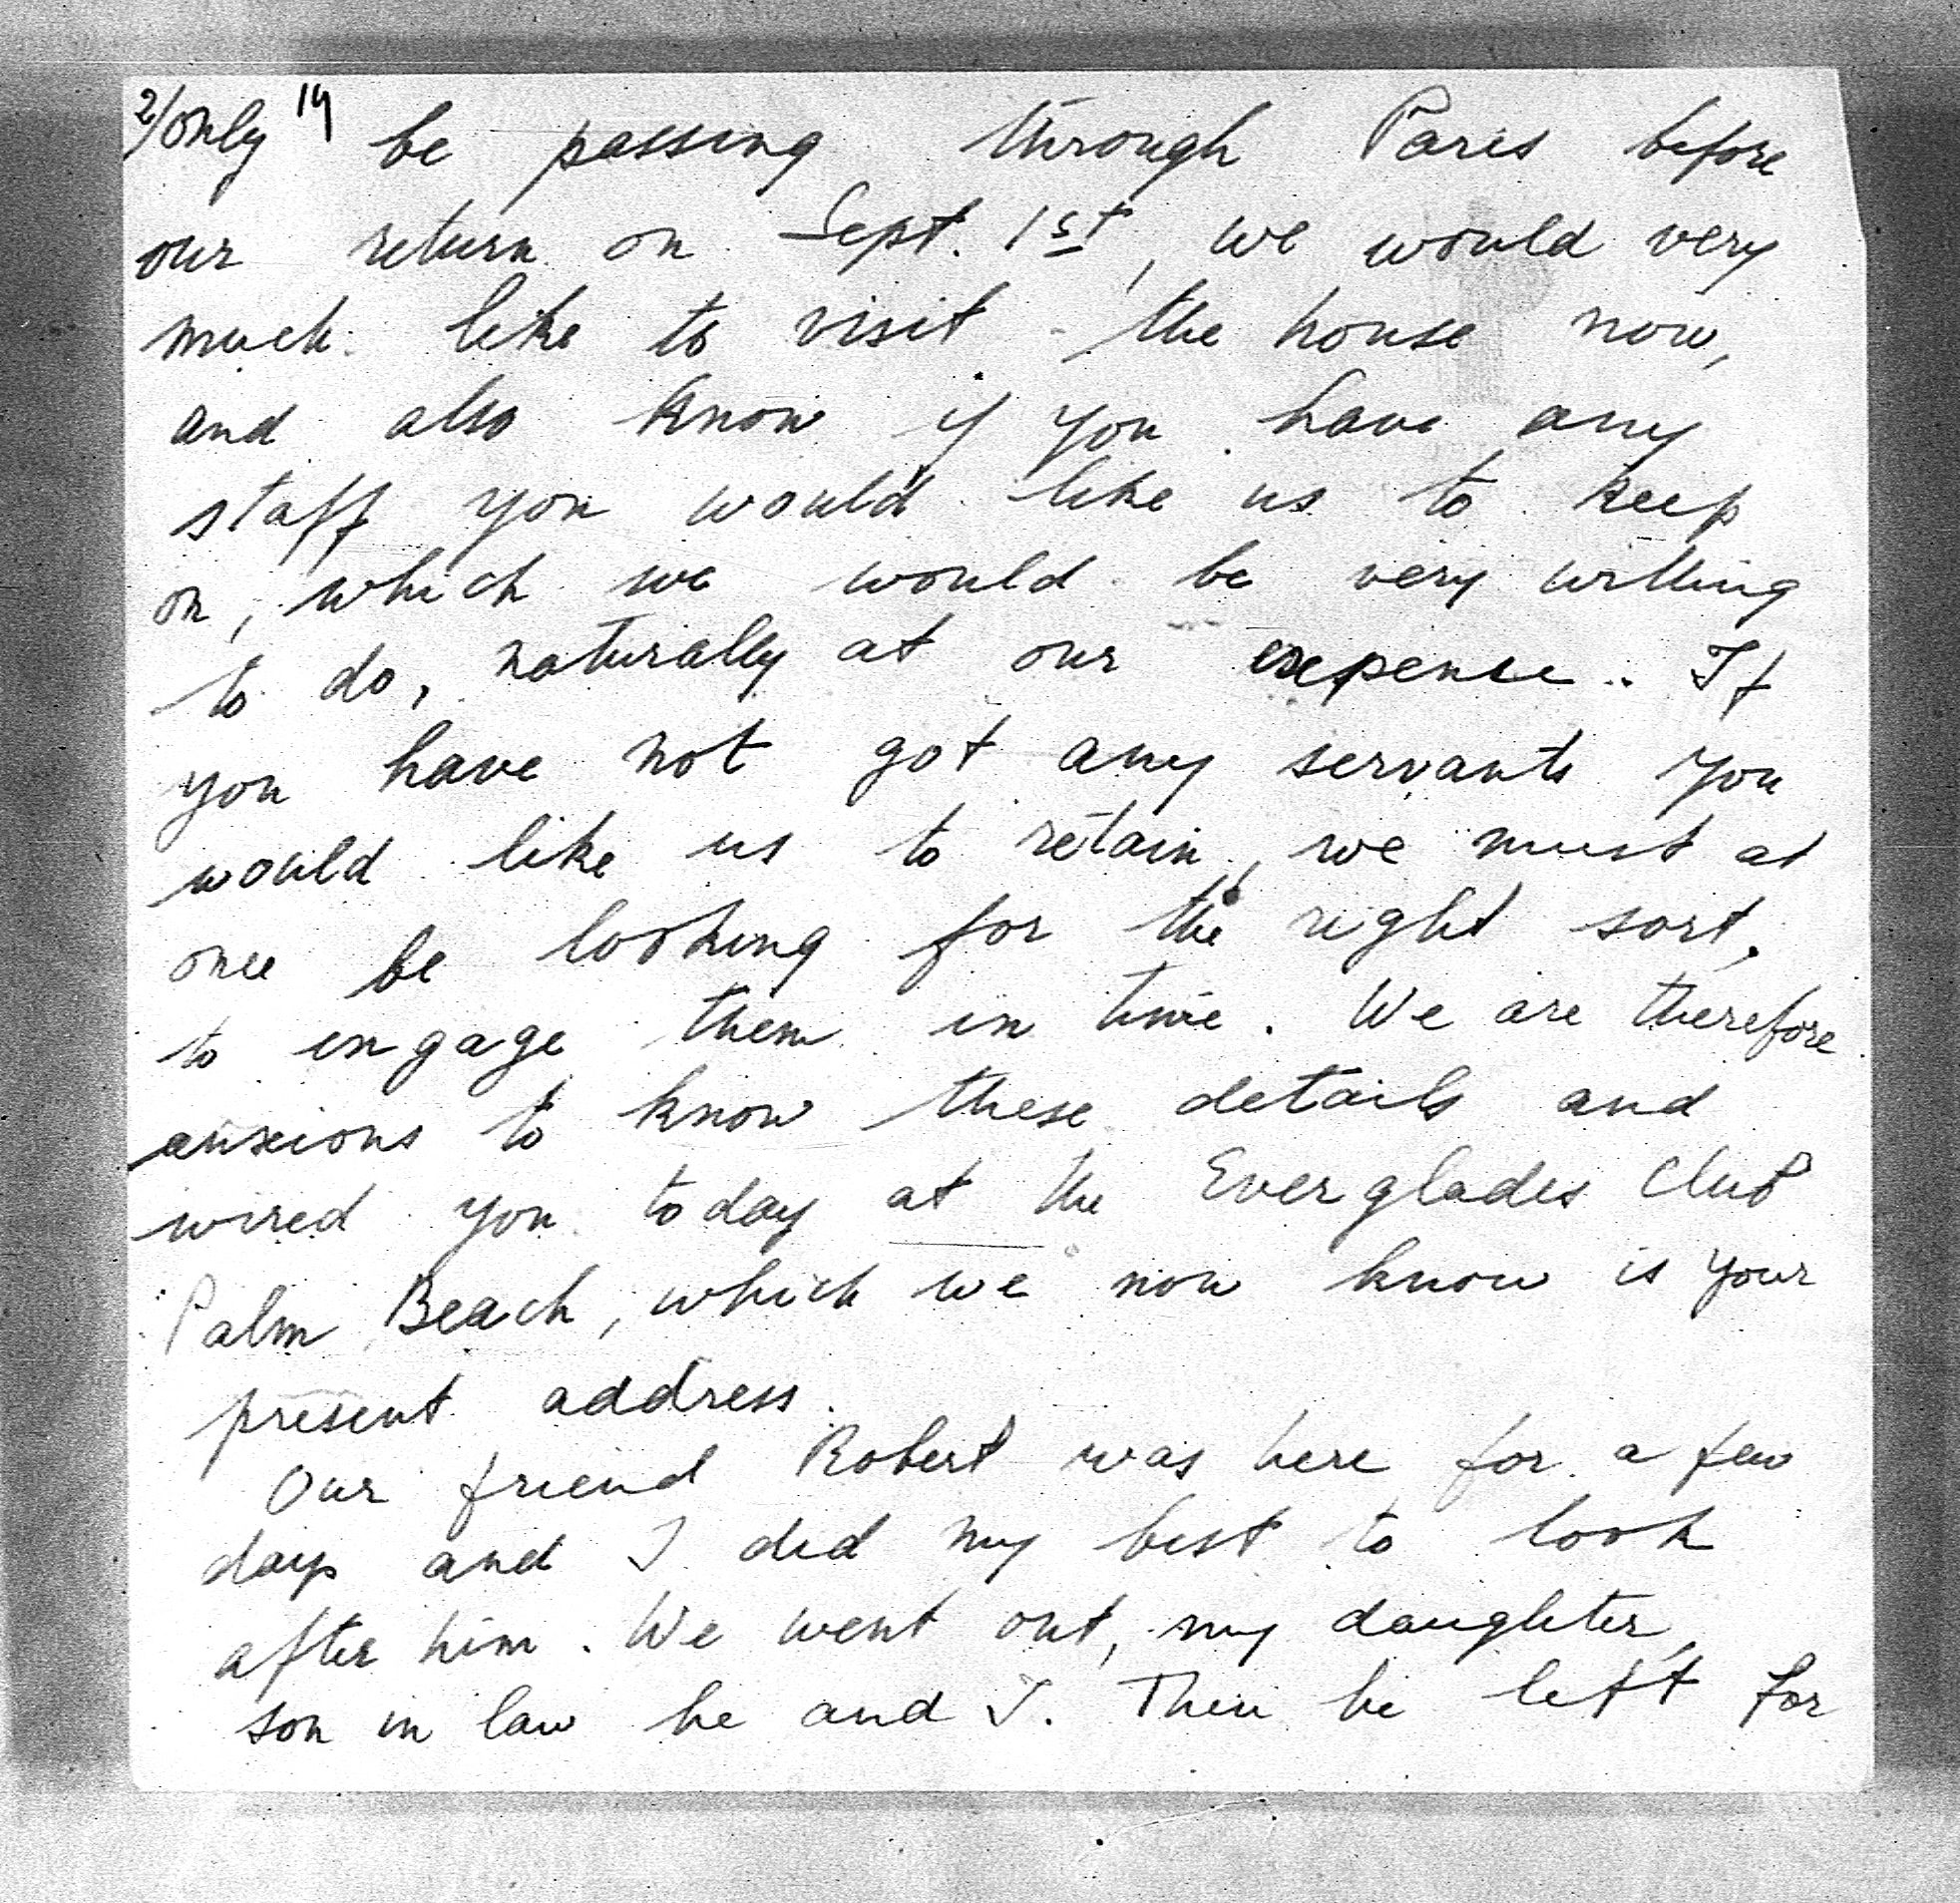 2/ only 14 be passing through Paris before
our return on Sept. 1st, we would very
much like to visit the house now,
and also know if you have any
staff you would like us to keep
on, which we would be very willing
to do, naturally at our expense. If
you have not got any servants you
would like us to retain, we must at
once be looking for the right sort,
to engage them in time. We are therefore
anxious to know these details and
wired you today at the Everglades Club
Palm Beach, which we now know is your
present address.
Our friend Robert was here for a few
days and I did my best to look
after him. We went out, my daughter,
son in law he and I. Then he left for